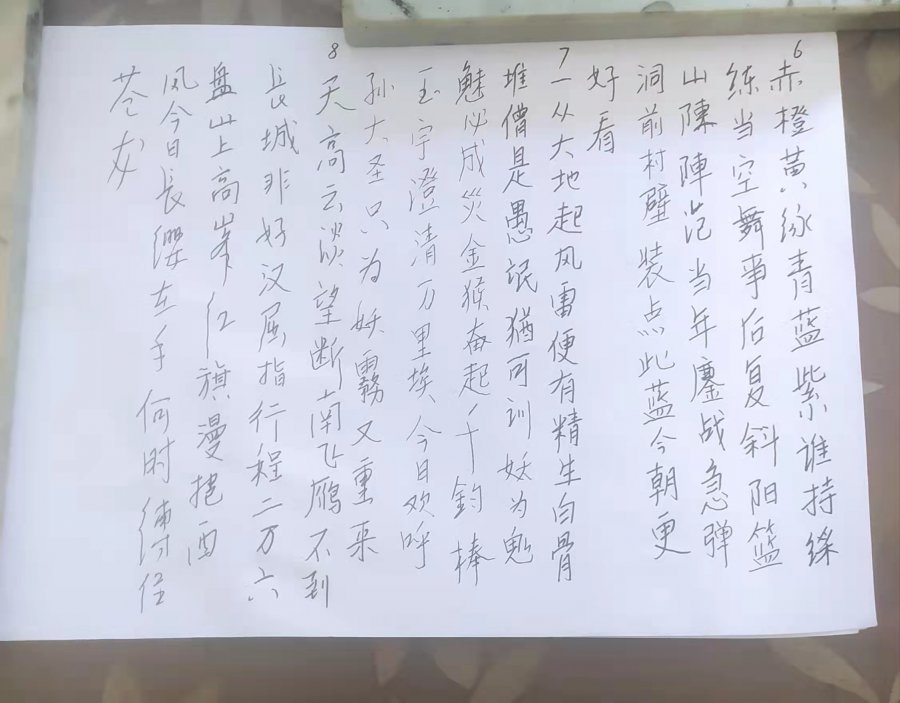 6 赤橙黄绿青蓝紫谁持綵
练当空舞事后复斜阳篮
山陳陣范当年鏖战急弹
洞前村壁装点此蓝今朝更
好看
7 一从大地起风雷便有精生白骨
堆僧是愚氓猶可训妖为鬼
魅必成災金猴奋起千鈞棒
玉宇澄清万里埃今日欢呼
孙大圣只为妖霧又重来
8 天高云淡望断南飞雁不到
長城非好汉屈指行程二万六
盘山上高峯红旗漫捲西
风今日長缨在手何时縛住
苍龙